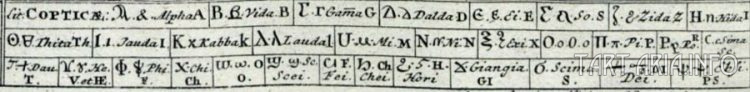 Lit: COPTICÆ: Ⲁ. ⲁ Alpha A Ⲃ. ⲃ. Vida. B Ⲅ. ⲅ Gam̃a G Ⲇ. ⲇ Dalda D Ⲉ. ⲉ. Ei. E Ⲋ. ⲋ So. S Ⲍ. ⲍ Zida Z Ⲏ. ⲏ
Ⲑ ⲑ Thita Th. Ⲓ. ⲓ Iauda I Ⲕ ⲕ Kabba k Ⲗ ⲗ Lauda l Ⲙ. ⲙ. Mi. M Ⲛ. ⲛ Ni. N Ⲝ. ⲝ Exi. X Ⲟ. ⲟ O. O Ⲡ. ⲡ. Pi. P. Ⲣ ⲣ Ro. R. Ⲥ. ⲥ Sima S.
Ⲧ. ⲧ Dau. T. Ⲩ. ⲩ. He. V. et H. Ⲫ. ⲫ Phi F. Ⲭ. Chi Ch. Ⲱ. ⲱ. O. O Ϣ. ϣ Scei. Sc. Ϥ F. Fei. Ϧ. Ch. Chei Ϩ. ϩ. H. Hori Ϫ Giangia GI Ϭ. Scima S. Ϯ. Dei. Ⲯ. PS.
TARTARIA.INFO